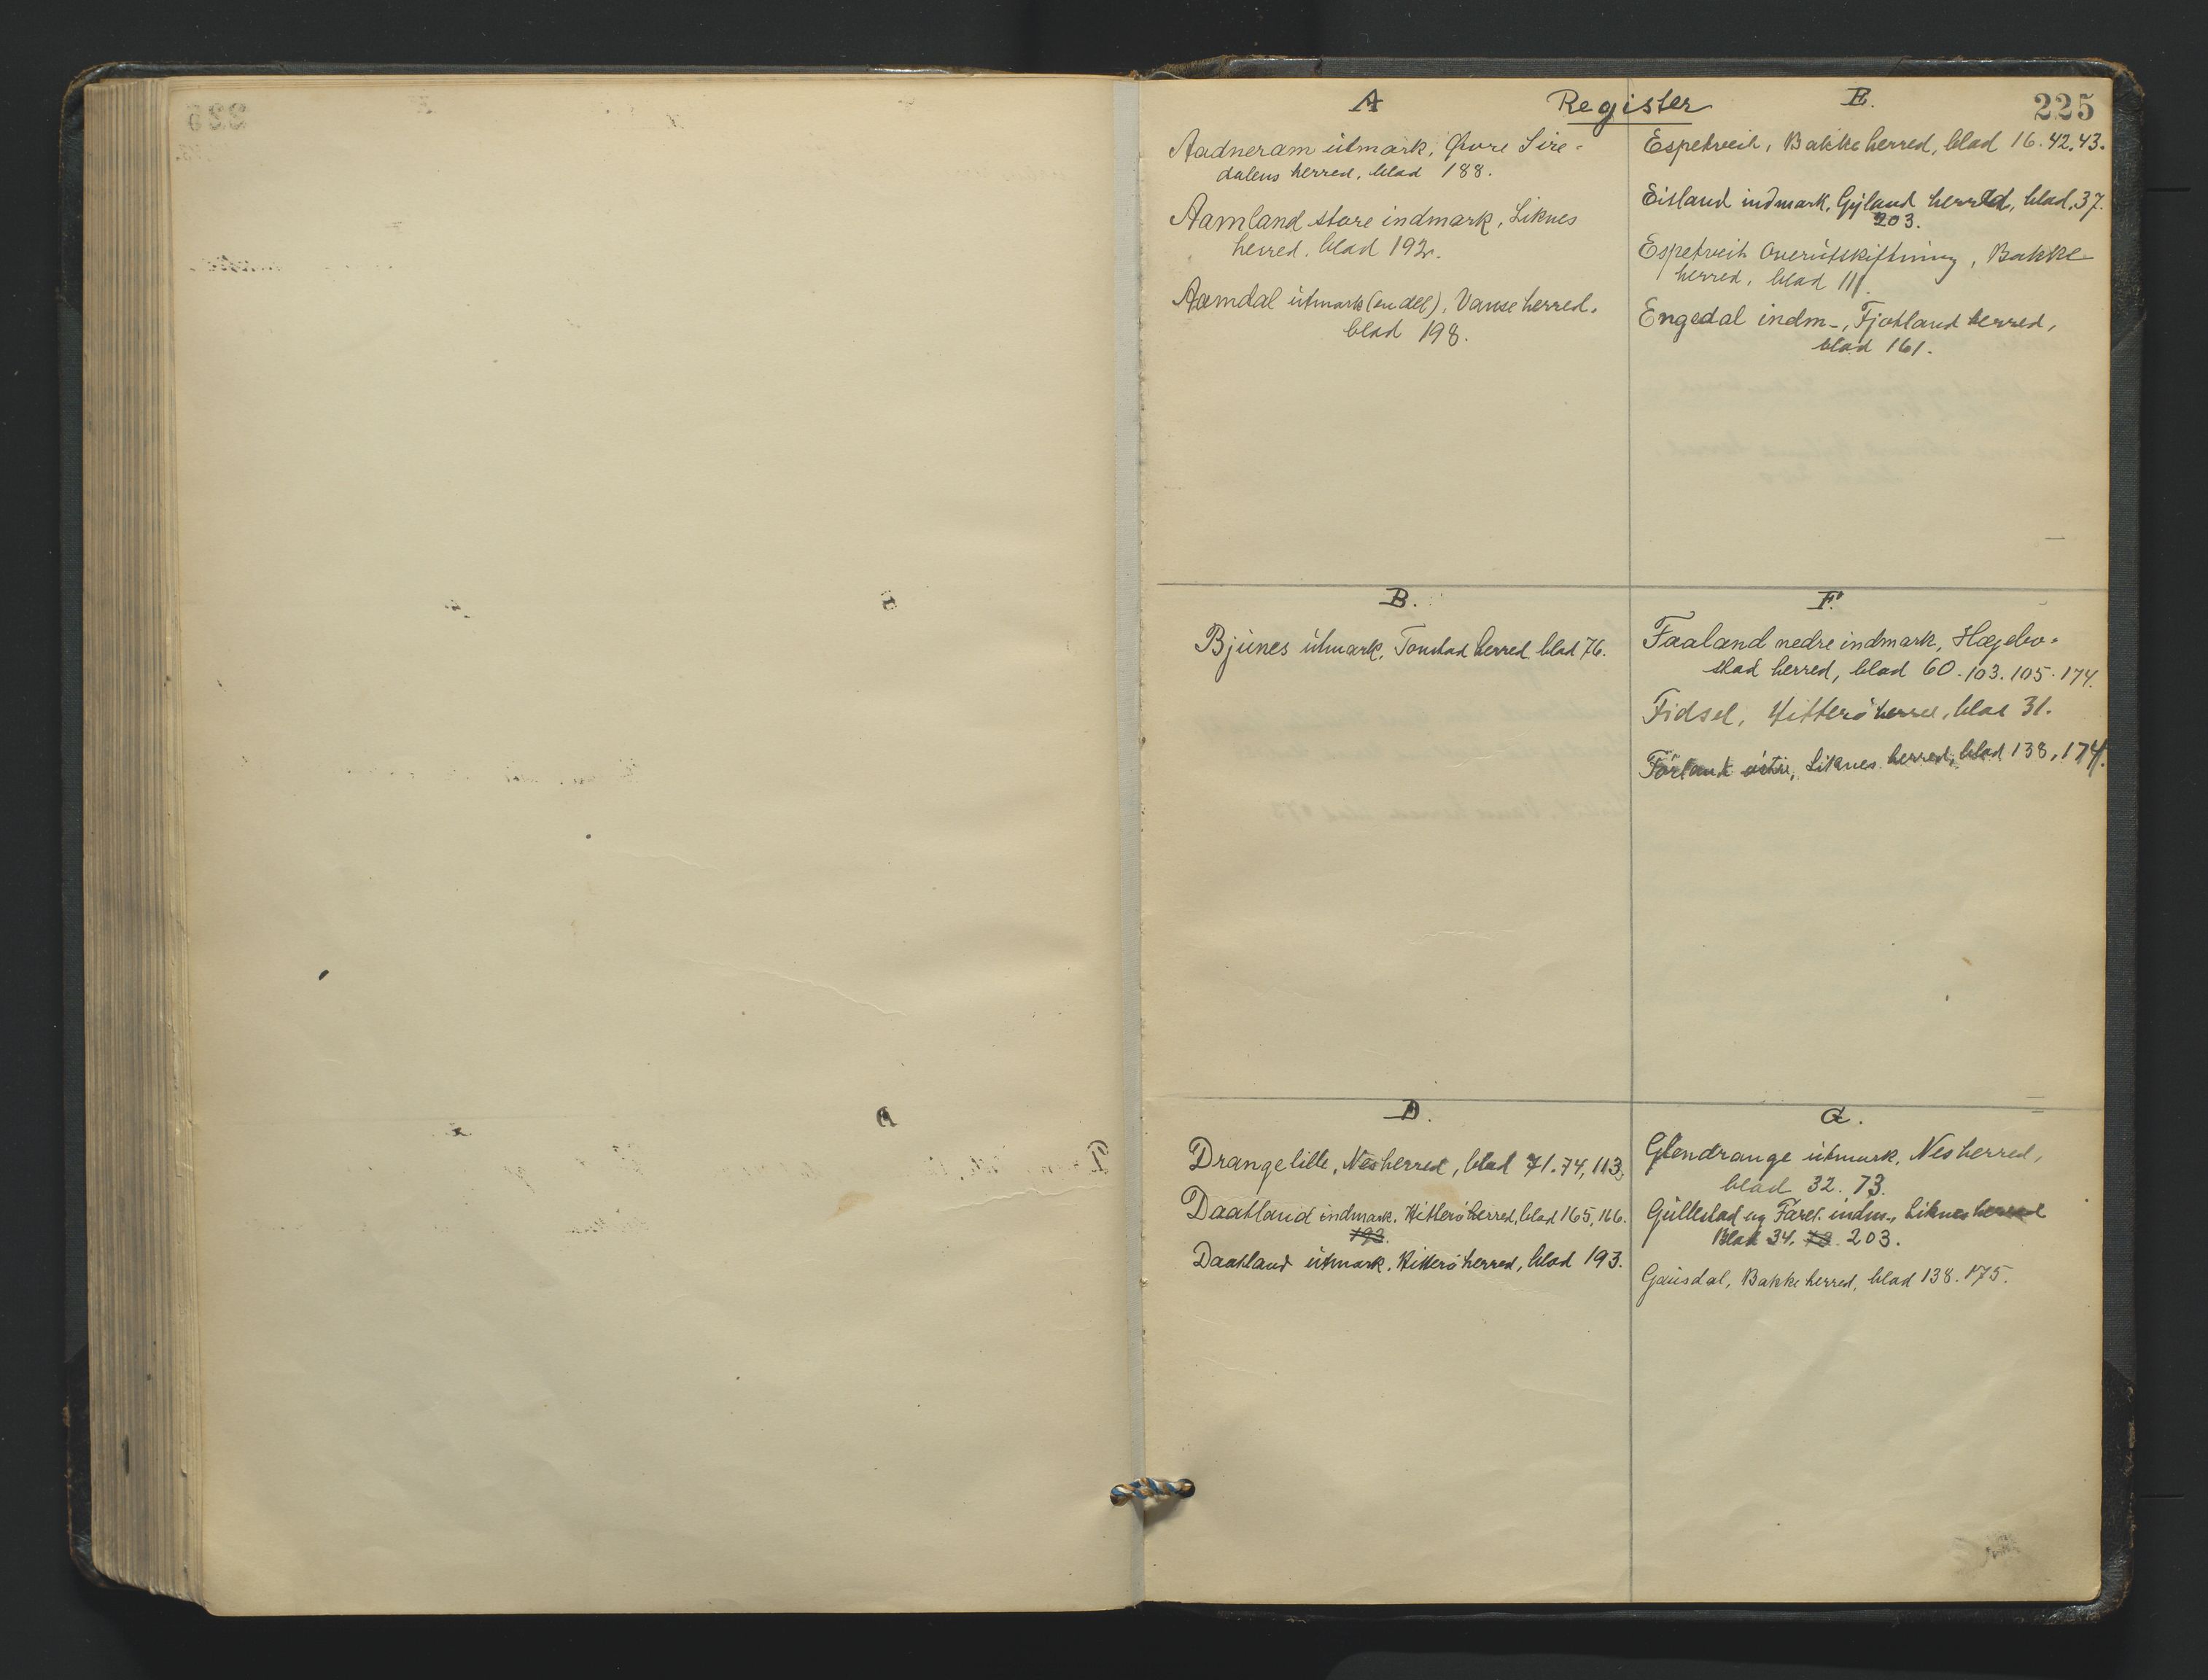 Register
225
A
Aadneram utmark, Øvre Sire-
dalens herred, blad 188.
Aamland store indmark, Liknes
herred, blad 192.
Aamdal utmark (en del), Vanse herred.
blad 198.
B.
Bjunes utmark, Tonstad herred blad 76.
D.
Drange lille, Nes herred, blad 71. 74, 113.
Daatland indmark. Hitterö herred, blad 165, 166.
193.
Daatland utmark. Hitterö herred, blad 193.
E.
Espetveit, Bakke herred, blad 16. 42. 43.
Eitland indmark, Gyland herred, blad, 37.
203.
Espetveit Overutskiftning, Bakke
herred, blad 111.
Engedal indm-, Fjotland herred,
blad 161.
F.
Faaland nedre indmark, Hægebo-
stad herred, blad 60. 103. 105. 174.
Fidsel, Hitterö herred, blad 31.
östre, Liknes herred, blad 138, 174.
G.
Glendrange utmark, Nes herred,
blad 32. 73.
Gullestad og indm., Liknes herred
Blad 34. 73. 203.
Gausdal, Bakke herred, blad 138. 175.